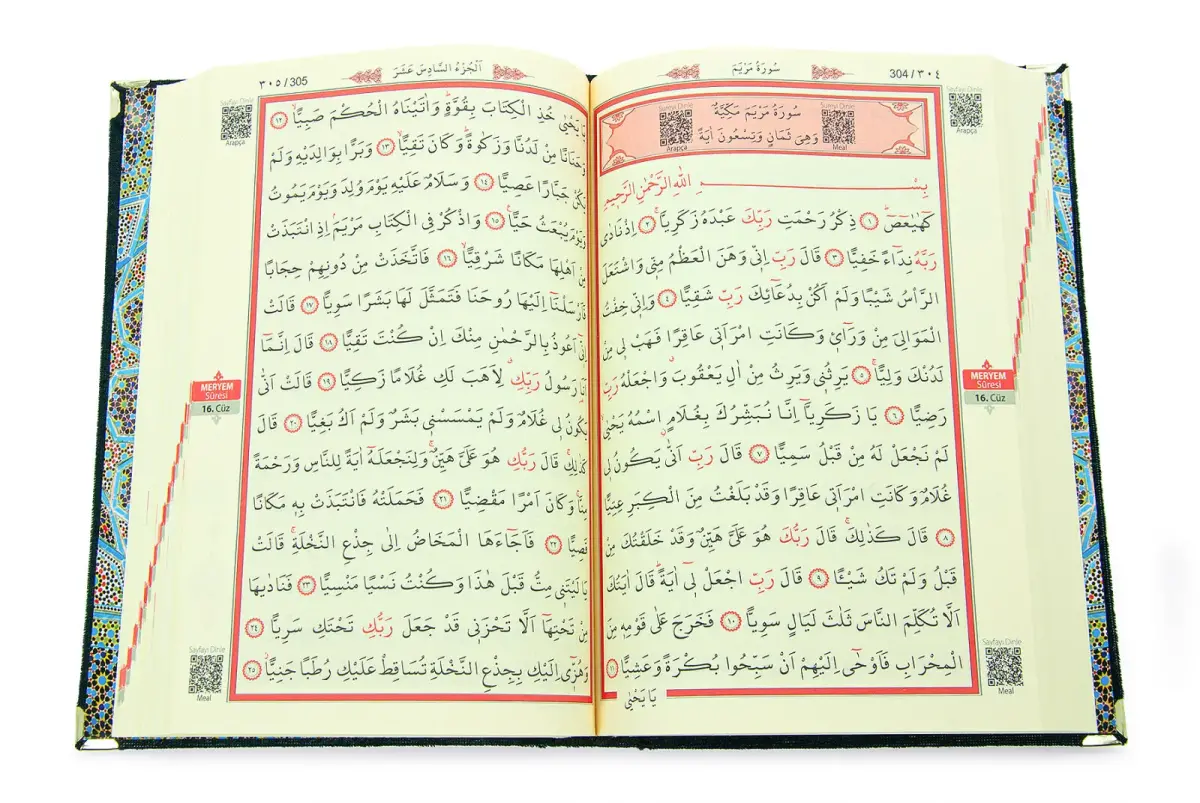 304/٣٠٤
سُورَةُ مَرْيَمَ
Sayfayı Dinle
Arapça
Sureyi Dinle
Arapça
سُورَةُ مَرْيَمَ مَكِّيَّةٌ
وَهِيَ ثَمَانٍ وَتِسْعُونَ اٰيَةً
Sureyi Dinle
Meal
بِسْــــمِ اللّٰهِ الرَّحْمٰنِ الرَّحٖيمِ
كٓهٰيٰعٓصٓ ۜ ﴿١﴾ ذِكْرُ رَحْمَتِ رَبِّكَ عَبْدَهُ زَكَرِيَّاۚ ﴿٢﴾ اِذْ نَادٰى
رَبَّهُ نِدَٓاءً خَفِيًّا ﴿٣﴾ قَالَ رَبِّ اِنّٖي وَهَنَ الْعَظْمُ مِنّٖي وَاشْتَعَلَ
الرَّأْسُ شَيْبًا وَلَمْ اَكُنْ بِدُعَٓائِكَ رَبِّ شَقِيًّا ﴿٤﴾ وَاِنّٖي خِفْتُ
الْمَوَالِيَ مِنْ وَرَٓاءٖي وَكَانَتِ امْرَاَتٖي عَاقِرًا فَهَبْ لٖي مِنْ
لَدُنْكَ وَلِيًّاۙ ﴿٥﴾ يَرِثُنٖي وَيَرِثُ مِنْ اٰلِ يَعْقُوبَۗ وَاجْعَلْهُ رَبِّ
رَضِيًّا ﴿٦﴾ يَا زَكَرِيَّٓا اِنَّا نُبَشِّرُكَ بِغُلَامٍ اسْمُهُ يَحْيٰىۙ
لَمْ نَجْعَلْ لَهُ مِنْ قَبْلُ سَمِيًّا ﴿٧﴾ قَالَ رَبِّ اَنّٰى يَكُونُ لٖي
غُلَامٌ وَكَانَتِ امْرَاَتٖي عَاقِرًا وَقَدْ بَلَغْتُ مِنَ الْكِبَرِ عِتِيًّا
﴿٨﴾ قَالَ كَذٰلِكَۚ قَالَ رَبُّكَ هُوَ عَلَيَّ هَيِّنٌ وَقَدْ خَلَقْتُكَ مِنْ
قَبْلُ وَلَمْ تَكُ شَيْـًٔا ﴿٩﴾ قَالَ رَبِّ اجْعَلْ لٖٓي اٰيَةًۜ قَالَ اٰيَتُكَ
اَلَّا تُكَلِّمَ النَّاسَ ثَلٰثَ لَيَالٍ سَوِيًّا ﴿١٠﴾ فَخَرَجَ عَلٰى قَوْمِهٖ مِنَ
الْمِحْرَابِ فَاَوْحٰٓى اِلَيْهِمْ اَنْ سَبِّحُوا بُكْرَةً وَعَشِيًّا ﴿١١﴾
يَا يَحْيٰى
MERYEM
Sûresi
16. Cüz
Sayfayı Dinle
Meal
٣٠٥/305
اَلْجُزْءُ السَّادِسَ عَشَرَ
Sayfayı Dinle
Arapça
يَا يَحْيٰى خُذِ الْكِتَابَ بِقُوَّةٍۜ وَاٰتَيْنَاهُ الْحُكْمَ صَبِيًّاۙ ﴿١٢﴾
وَحَنَانًا مِنْ لَدُنَّا وَزَكٰوةًۜ وَكَانَ تَقِيًّاۙ ﴿١٣﴾ وَبَرًّا بِوَالِدَيْهِ وَلَمْ
يَكُنْ جَبَّارًا عَصِيًّا ﴿١٤﴾ وَسَلَامٌ عَلَيْهِ يَوْمَ وُلِدَ وَيَوْمَ يَمُوتُ
وَيَوْمَ يُبْعَثُ حَيًّاۚ ﴿١٥﴾ وَاذْكُرْ فِي الْكِتَابِ مَرْيَمَۢ اِذِ انْتَبَذَتْ
مِنْ اَهْلِهَا مَكَانًا شَرْقِيًّاۙ ﴿١٦﴾ فَاتَّخَذَتْ مِنْ دُونِهِمْ حِجَابًا
فَاَرْسَلْنَٓا اِلَيْهَا رُوحَنَا فَتَمَثَّلَ لَهَا بَشَرًا سَوِيًّا ﴿١٧﴾ قَالَتْ
اِنّٖٓي اَعُوذُ بِالرَّحْمٰنِ مِنْكَ اِنْ كُنْتَ تَقِيًّا ﴿١٨﴾ قَالَ اِنَّمَٓا
اَنَا رَسُولُ رَبِّكِۗ لِاَهَبَ لَكِ غُلَامًا زَكِيًّا ﴿١٩﴾ قَالَتْ اَنّٰى
يَكُونُ لٖي غُلَامٌ وَلَمْ يَمْسَسْنٖي بَشَرٌ وَلَمْ اَكُ بَغِيًّا ﴿٢٠﴾ قَالَ
كَذٰلِكِۚ قَالَ رَبُّكِ هُوَ عَلَيَّ هَيِّنٌۚ وَلِنَجْعَلَهُٓ اٰيَةً لِلنَّاسِ وَرَحْمَةً
مِنَّاۚ وَكَانَ اَمْرًا مَقْضِيًّا ﴿٢١﴾ فَحَمَلَتْهُ فَانْتَبَذَتْ بِهٖ مَكَانًا
قَصِيًّا ﴿٢٢﴾ فَاَجَٓاءَهَا الْمَخَاضُ اِلٰى جِذْعِ النَّخْلَةِۚ قَالَتْ
يَا لَيْتَنٖي مِتُّ قَبْلَ هٰذَا وَكُنْتُ نَسْيًا مَنْسِيًّا ﴿٢٣﴾ فَنَادٰيهَا
مِنْ تَحْتِهَٓا اَلَّا تَحْزَنٖي قَدْ جَعَلَ رَبُّكِ تَحْتَكِ سَرِيًّا ﴿٢٤﴾
وَهُزّٖٓي اِلَيْكِ بِجِذْعِ النَّخْلَةِ تُسَاقِطْ عَلَيْكِ رُطَبًا جَنِيًّاۘ ﴿٢٥﴾
MERYEM
Sûresi
16. Cüz
Sayfayı Dinle
Meal